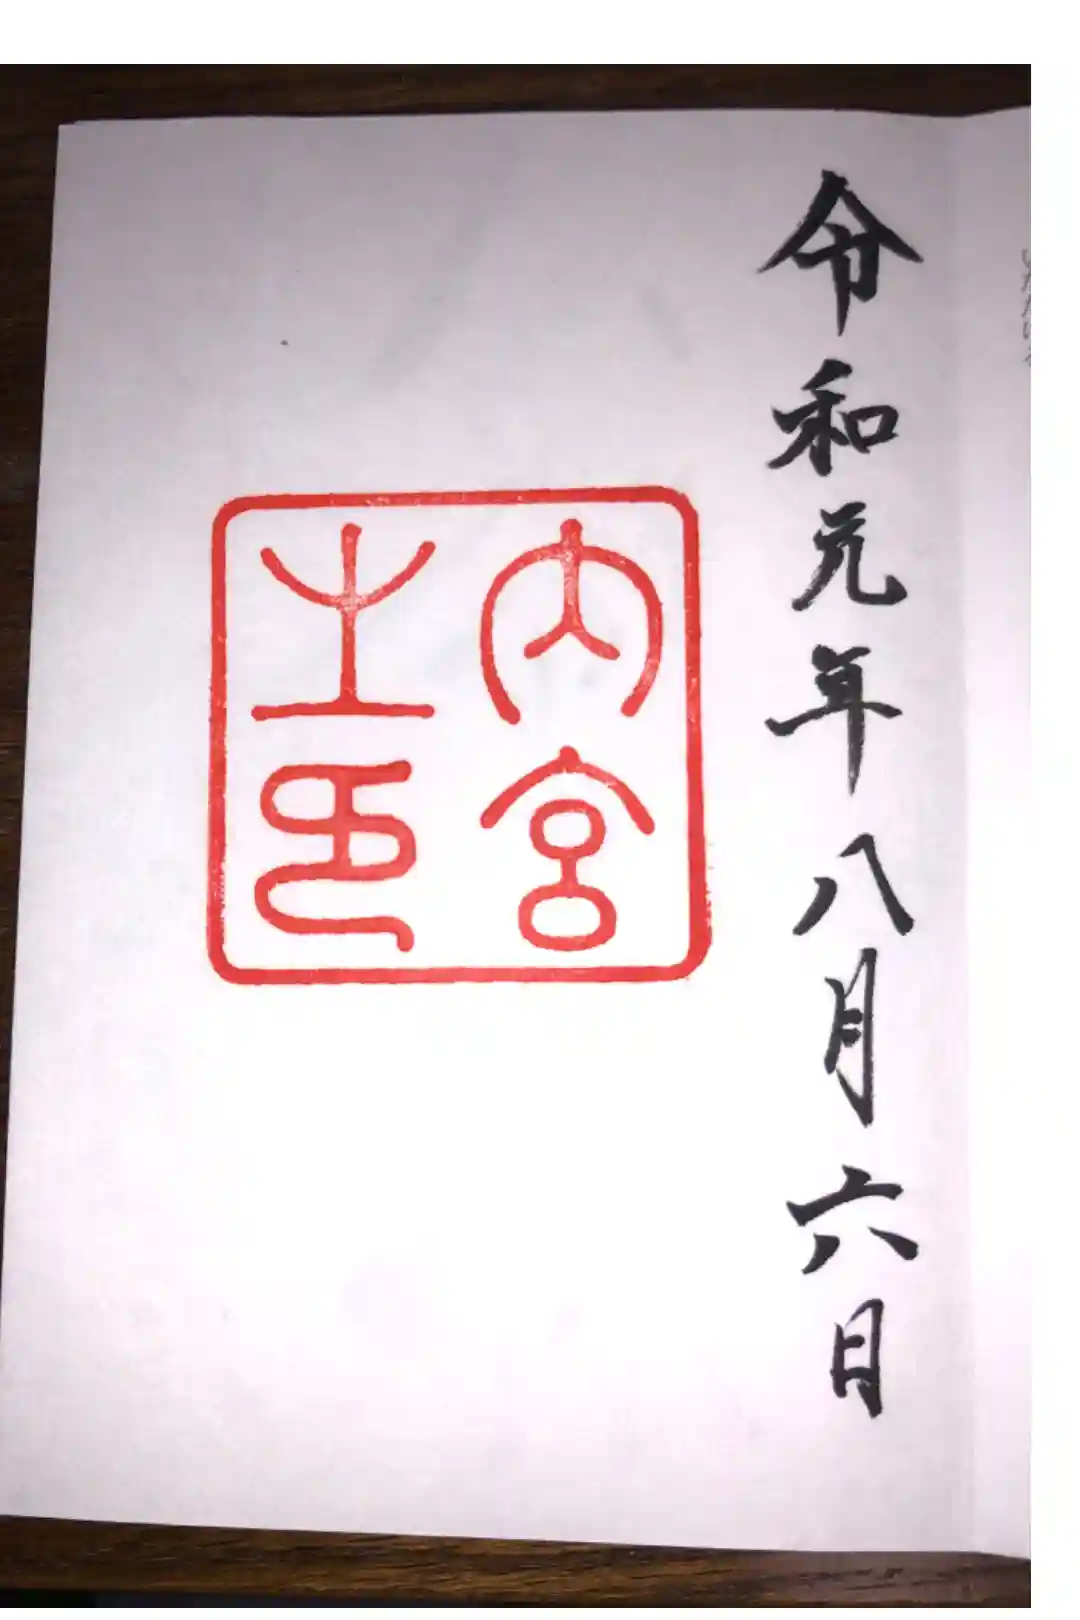 令和元年八月六日
内宮
之印